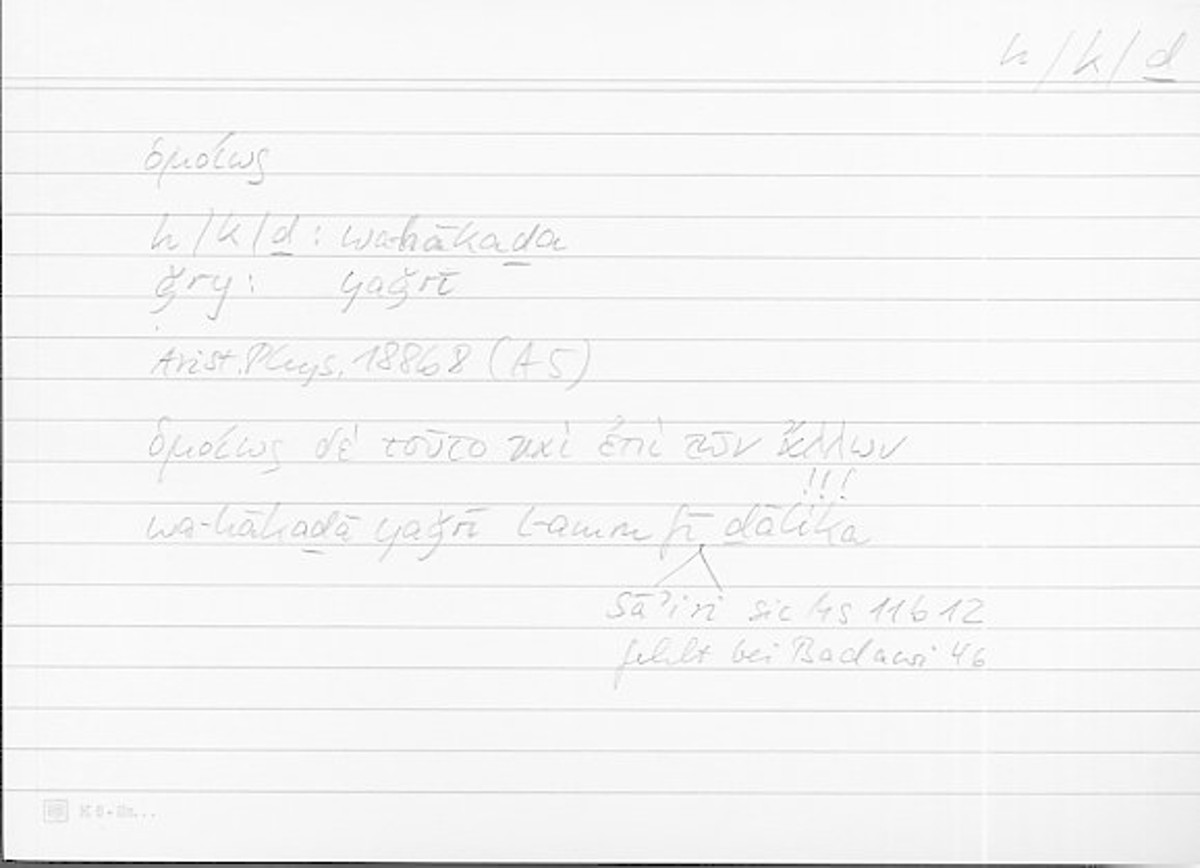 h/k/ḏ
ὁμοίως
h/k/ḏ: wa-hākaḏa
ǧry: yaǧrī
Arist. Phys. 188b8 (A5)
ὁμοίως δὲ τοῦτο καὶ ἐπὶ τῶν ἄλλων
!!!
wa-hākaḏā yaǧrī l-amru fī ḏālika
sāʾiri sic Hs 11b12
fehlt bei Badawi 46